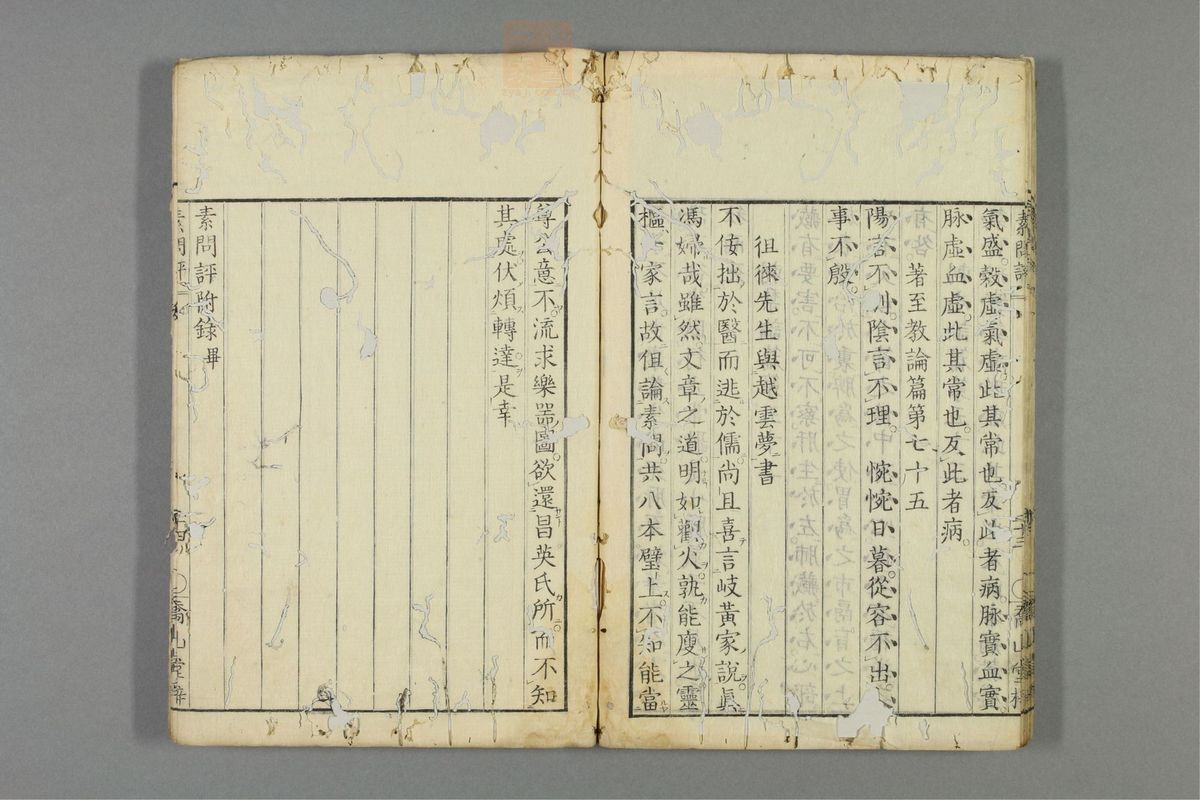 素問評
氣盛穀虛氣虛此其常也反此者病脉實血實
脉虛血虛此其常也反此者病
著至教論篇第七十五
陽言不別陰言不理 惋惋日暮從容不出
事不殷
徂徠先生與越雲夢書
不佞拙於醫而逃於儒尚且喜言岐黃家說眞
馮婦哉雖然文章之道明如觀火孰能廋之靈
樞 家言故徂論素問共八本壁上不知能當
尊公意不流求樂器圖欲還昌英氏所而不知
其處伏煩轉達是幸
素問評附錄畢
素問評